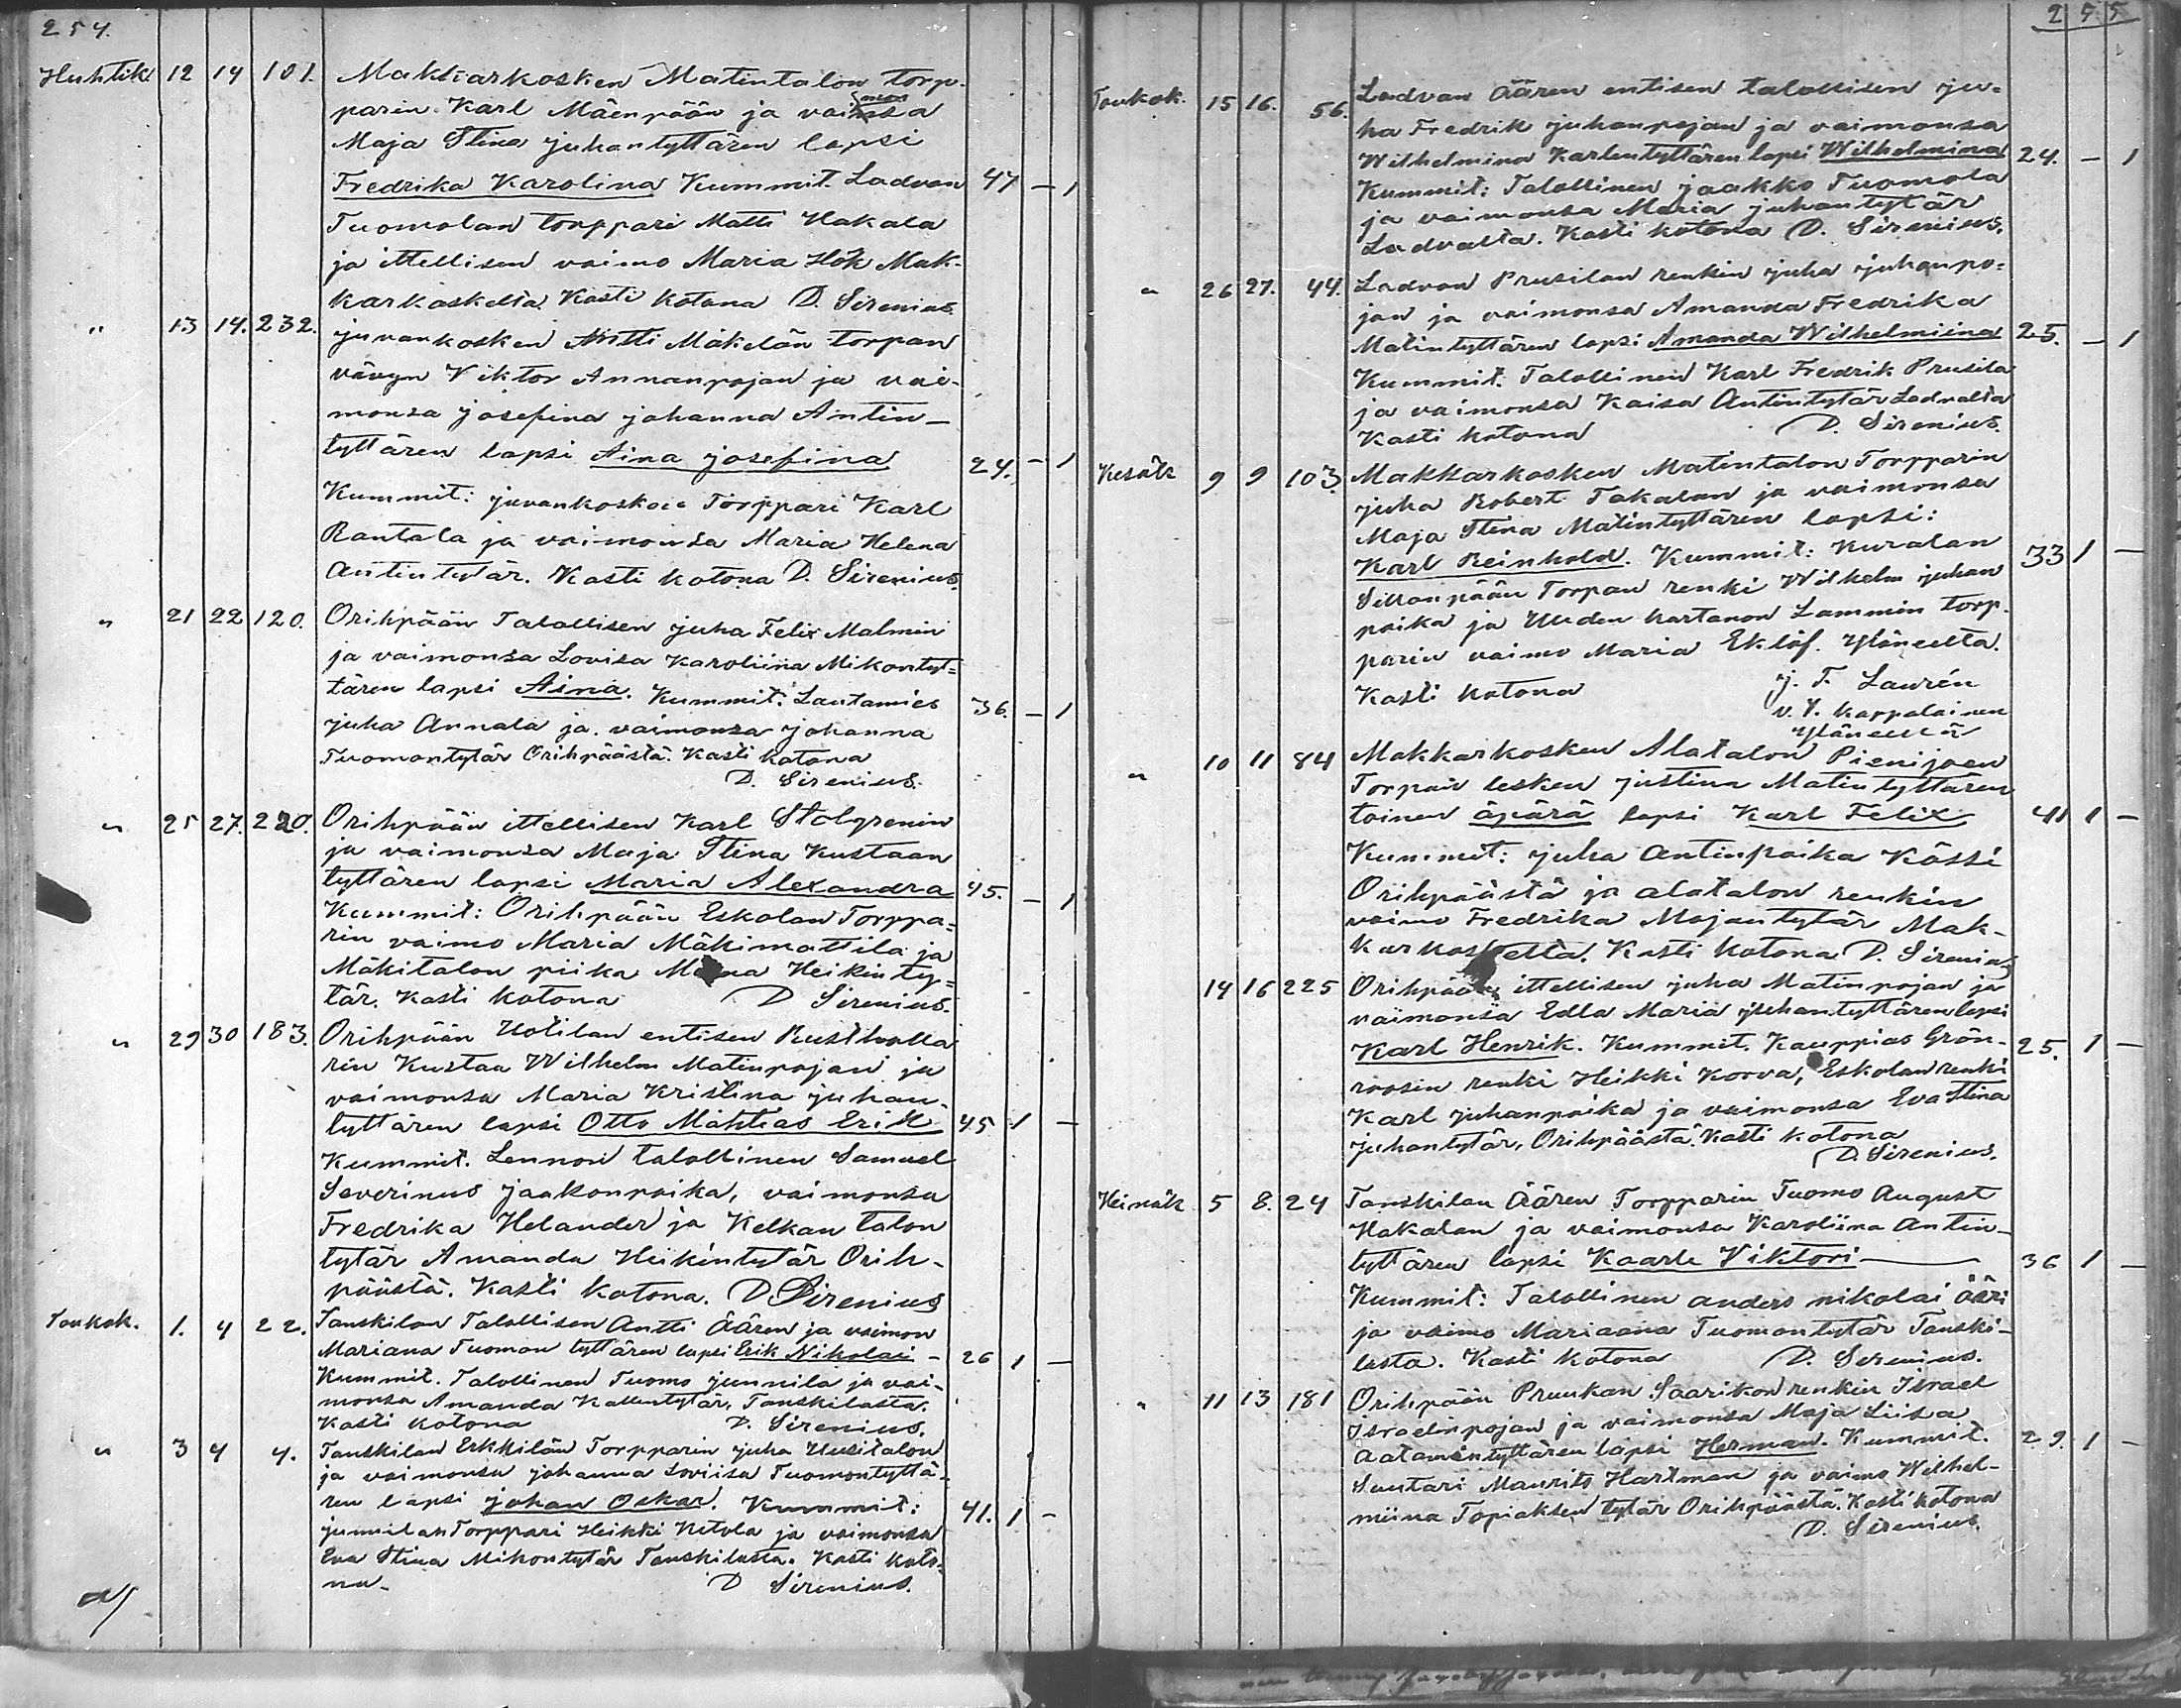 254.
Huhtik. 12 14 101. Makkarkosken Matintalon torp-
parin Karl Mäenpään ja vaimonsa
Maja Stina Juhantyttären lapsi
Fredrika Karolina Kummit. Ladvan 47 — 1
Tuomolan torppari Matti Hakala
ja ittellisen vaimo Maria Hök Mak-
karkoskelta. Kasti kotona D. Sirenius.
" 13 14. 232. Juvankosken Antti Mäkelän torpan
vävyn Viktor Annanpojan ja vai-
monsa Josefina Johanna Antin-
tyttären lapsi Aina Josefina 24. — 1
Kummit: Juvankosken Torppari Karl
Rantala ja vaimonsa Maria Helena
Antintytär. Kasti kotona D. Sirenius.
" 21 22 120. Orihpään Talollisen Juha Felix Malmin
ja vaimonsa Lovisa Karoliina Mikontyt=
tären lapsi Aina. Kummit: Lautamies 36. — 1
Juha Annala ja vaimonsa Johanna
Tuomontytär Orihpäästä. Kasti kotona
D. Sirenius.
" 25 27. 220. Orihpään ittellisen Karl Stolgrenin
ja vaimonsa Maja Stina Kustaan
tyttären lapsi Maria Alexandra 45. — 1
Kummit: Orihpään Eskolan Torppa=
rin vaimo Maria Mäkimattila ja
Mäkitalon piika Heikinty=
tär. Kasti kotona D Sirenius.
" 29 30 183. Orihpään Uotilan entisen Rustholla
rin Kustaa Wilhelm Matinpojan ja
vaimonsa Maria Kristina Juhan-
tyttären lapsi Otto Mahtias Erik 45 1 —
Kummit. Lennon talollinen Samuel
Severinus Jaakonpoika, vaimonsa
Fredrika Helander ja Kelkan talon
tytär Amanda Heikintytär Orih-
päästä. Kasti kotona. D. Sirenius
Toukok. 1. 4 22. Tanskilan Talollisen Antti Äären ja vaimon
Mariana Tuoman tyttären lapsi Erik Nikolai — 26 1 —
Kummit. Talollinen Tuomo Junnila ja vai-
monsa Amanda Kallentytär, Tanskilasta.
Kasti kotona D. Sirenius.
" 3 4 4. Tanskilan Erkkilän Torpparin Juha Uusitalon
ja vaimonsa Johanna Loviisa Tuomontyttä-
ren lapsi Johan Oskar. Kummit: 41. 1 —
Junnilan Torppari Heikki Nitola ja vaimonsa
Eva Stina Mikontytär Tanskilasta. Kasti koto-
na. D Sirenius.
255
Toukok. 15 16. 56. Ladvan Äären entisen talollisen Ju-
ha Fredrik Juhanpojan ja vaimonsa
Wilhelmina Karlentyttären lapsi Wilhelmina 24. — 1
Kummit: Talollinen Jaakko Tuomola
ja vaimonsa Maria Juhantytär
Ladvasta. Kasti kotona D. Sirenius.
" 26 27. 44. Ladvan Prusilan renkin Juha Juhanpo=
jan ja vaimonsa Amanda Fredrika
Matintyttären lapsi Amanda Wilhelmiina 25. — 1
Kummit. Talollinen Karl Fredrik Prusila
ja vaimonsa Kaisa Antintytär Ladvalta
Kasti kotona D. Sirenius.
Kesäk 9 9 103. Makkarkosken Matintalon Torpparin
Juha Robert Takalan ja vaimonsa
Maja Stina Matintyttären lapsi:
Karl Reinhold. Kummit: Kuralan 33 1 —
Sillanpään Torpan renki Wilhelm Juhan
poika ja Uuden kartanon Lammin torp-
parin vaimo Maria Eklöf. Yläneeltä.
Kasti kotona J. F. Laurén
v. t. kappalainen
Yläneellä
" 10 11 84 Makkarkosken Alatalon Pienijoen
Torpan lesken Justina Matintyttären
toinen äpärä lapsi Karl Felix 41 1 —
Kummit: Juha Antinpoika Kässi
Orihpäästä ja alatalon renkin
vaimo Fredrika Majantytär Mak-
karkoskelta. Kasti kotona D. Sirenius
14 16 225 Orihpään ittellisen Juha Matinpojan ja
vaimonsa Edla Maria Juhantyttären lapsi
Karl Henrik. Kummit. Kauppias Grön- 25. 1 —
roosin renki Heikki Korva, Eskolan renki
Karl Juhanpoika ja vaimonsa Eva Stina
Juhantytär, Orihpäästä. Kasti kotona
D. Sirenius.
Heinäk 5 8. 24 Tanskilan Äären Torpparin Tuomo August
Hakalan ja vaimonsa Karoliina Antin-
tyttären lapsi Kaarle Viktori — 36 1 —
Kummit: Talollinen anders nikolai ääri
ja vaimo Mariaana Tuomontytär Tanski-
lasta. Kasti kotona D. Sirenius.
" 11 13 181 Orihpään Pruukan Saarikon renkin Israel
Israelinpojan ja vaimonsa Maja Liisa
Aatamintyttären lapsi Herman. Kummit. 29. 1 —
Suutari Maurits Hartman ja vaimo Wilhel-
miina Topiaksen tytär Orihpäästä. Kasti kotona
D. Sirenius.